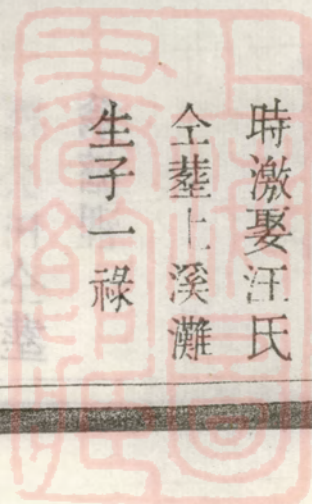 時激娶汪氏
仝塟上溪灘
生子一祿